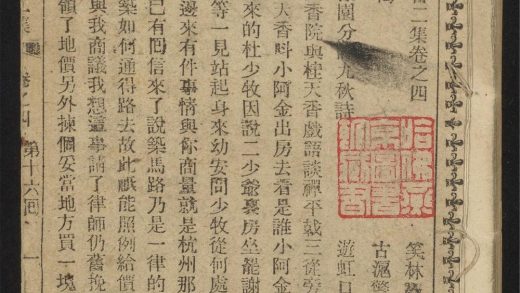 二集卷之四
笑林
古滬警
園分 九秋詩 遊虹口
香院與桂天香戲語談禪平戟三從旁
天香呌小阿金出房去看是誰小阿金
來的杜少牧因說二少爺裏房坐罷謝
等一見站起身來幼安問少牧從何處
邊來有件事情與你商量就是杭州那
已有問信來了說築馬路乃是一律的
築如何通得路去故此祇能照例給價
與我商議我想這事請了律師仍舊挽
領了地價另外揀個妥當地方買一塊
集 卷之四 第十六回 一